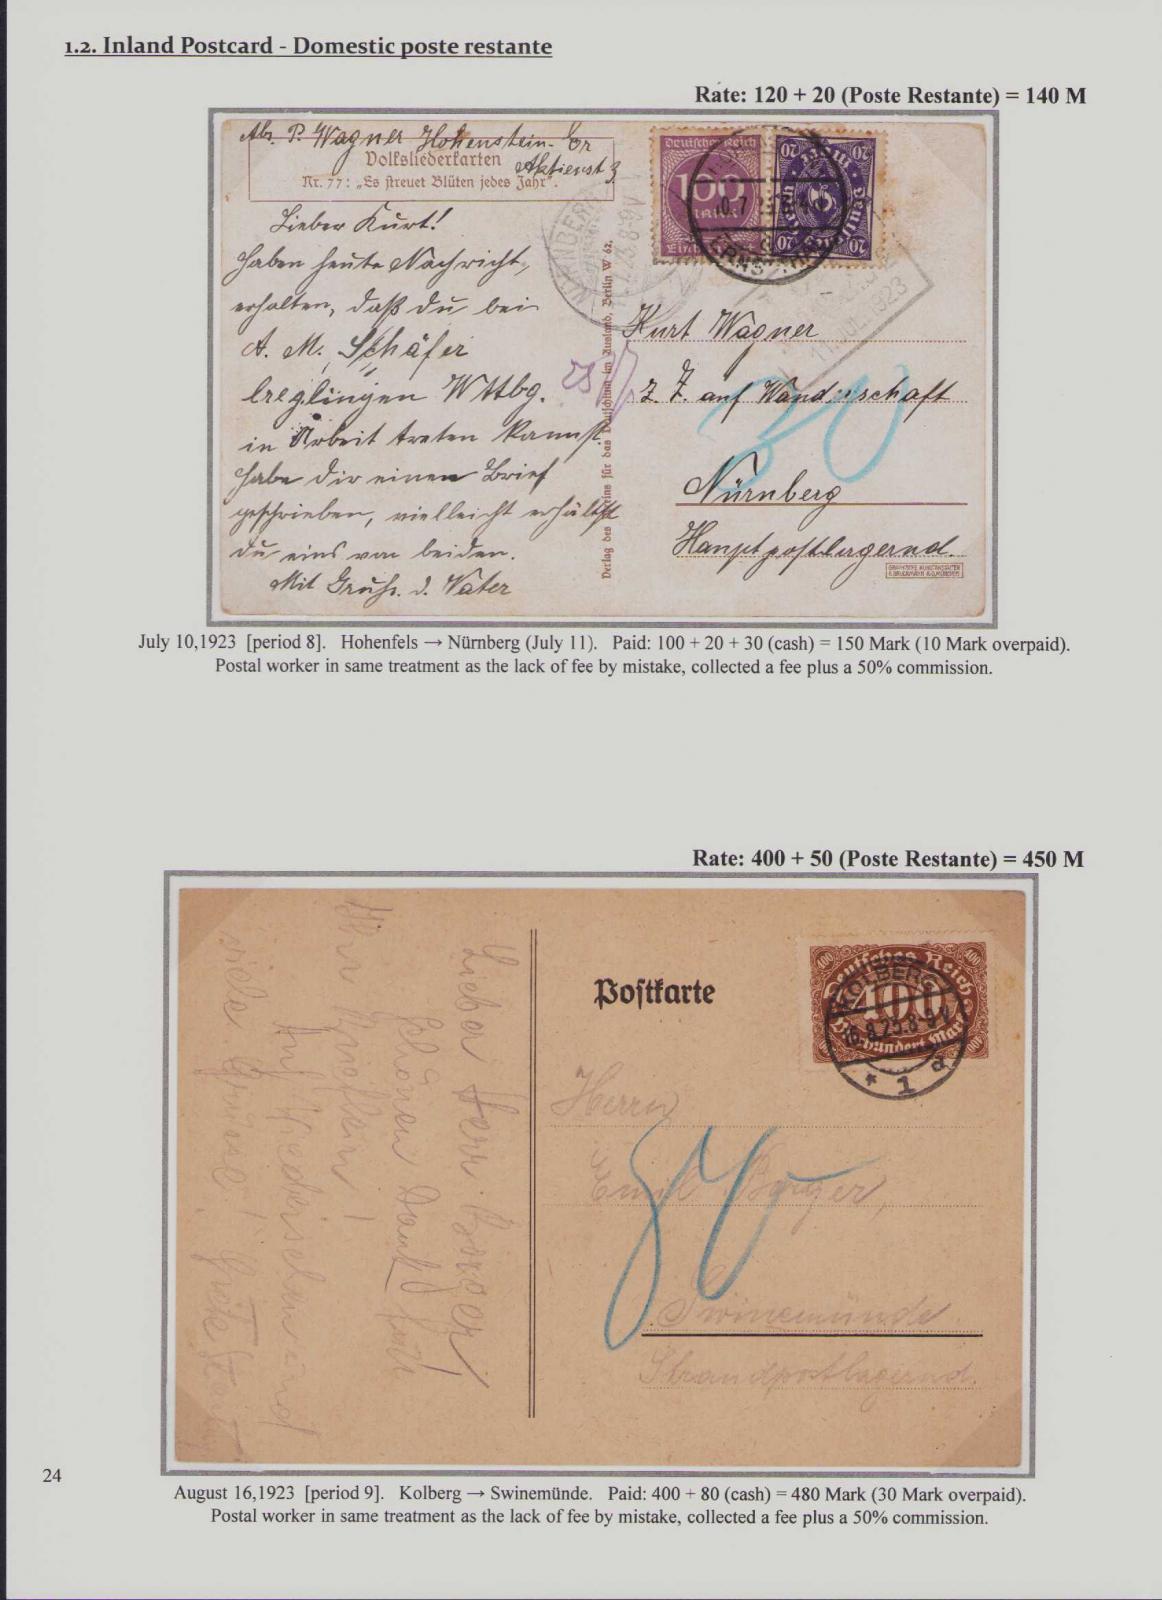 1.2. Inland Postcard - Domestic poste restante
Rate: 120 + 20 (Poste Restante) = 140 M
Abs. P. Wagner Hohenstein-Er
Aktienst 3
Volksliederkarten
Nr. 77: „Es streuet Blüten jedes Jahr".
Deutsches Reich
100
MARK
20
20
NÜRNBERG
Lieber Kurt!
Haben heute Nachricht
erhalten, daß du bei
A. M. Schäfer
Creglingen Wttbg.
in Arbeit treten kannst.
Habe dir einen Brief
geschrieben, vielleicht erhältst
du eins von beiden.
Mit Gruß. d. Vater
Verlag des Vereins für das Deutschtum im Ausland, Berlin W 62.
11. JUL. 1923
Kurt Wagner
z. Z. auf Wanderschaft
30
Nürnberg
Hauptpostlagernd.
July 10,1923 [period 8]. Hohenfels → Nürnberg (July 11). Paid: 100 + 20 + 30 (cash) = 150 Mark (10 Mark overpaid).
Postal worker in same treatment as the lack of fee by mistake, collected a fee plus a 50% commission.
Rate: 400 + 50 (Poste Restante) = 450 M
Postkarte
Deutsches Reich
400
Vierhundert Mark
KOLBERG
16.8.23.8-9V
* 1 d
Herrn
Emil Berger,
80
Swinemünde
Strandpostlagernd.
Lieber Herr Berger!
Schönen Dank für
Ihre Zeilen!
Auf Wiedersehen und
viele Grüsse!
24
August 16,1923 [period 9]. Kolberg → Swinemünde. Paid: 400 + 80 (cash) = 480 Mark (30 Mark overpaid).
Postal worker in same treatment as the lack of fee by mistake, collected a fee plus a 50% commission.